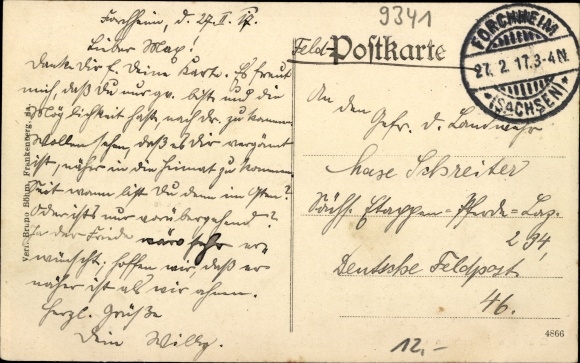 9341
Forchheim, d. 27. II. 17.
Lieber Max!
Dank Dir f. Deine Karte. Es freut
mich, daß Du nur gv. bist und die
Möglichkeit hast, nach Dr. zu kommen.
Wollen sehen, daß es Dir vergönnt
ist, näher in die Heimat zu kommen.
Seit wann bist Du denn im Osten?
Oder ists nur vorübergehend?
Ja der Friede wäre sehr er-
wünscht. Hoffen wir, daß er
näher ist als wir ahnen.
Herzl. Grüße
Dein Willy.
Verl. Bruno Böhm, Frankenberg,
Feld-Postkarte
FORCHHEIM
27. 2. 17. 3-4N.
(SACHSEN)
An den
Gefr. d. Landwehr
Max Schreiter
Sächs. Etappen-Pferde-Laz.
294,
Deutsche Feldpost
46.
12.-
4866